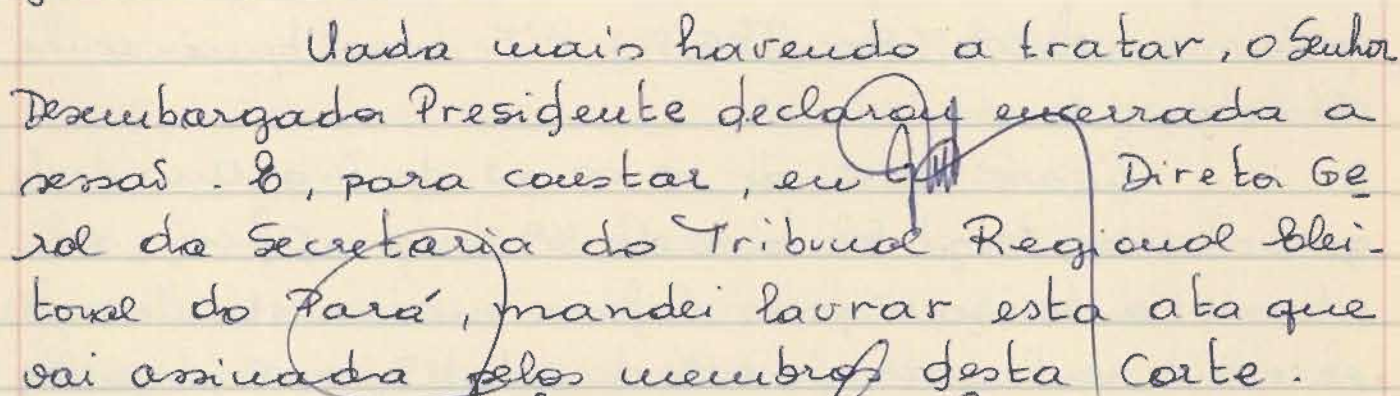 Nada mais havendo a tratar, o Senhor
Desembargador Presidente declarou encerrada a
sessão. E, para constar, eu Diretor Ge
ral da Secretaria do Tribunal Regional Elei-
toral do Pará, mandei lavrar esta ata que
vai assinada pelos membros desta Corte.